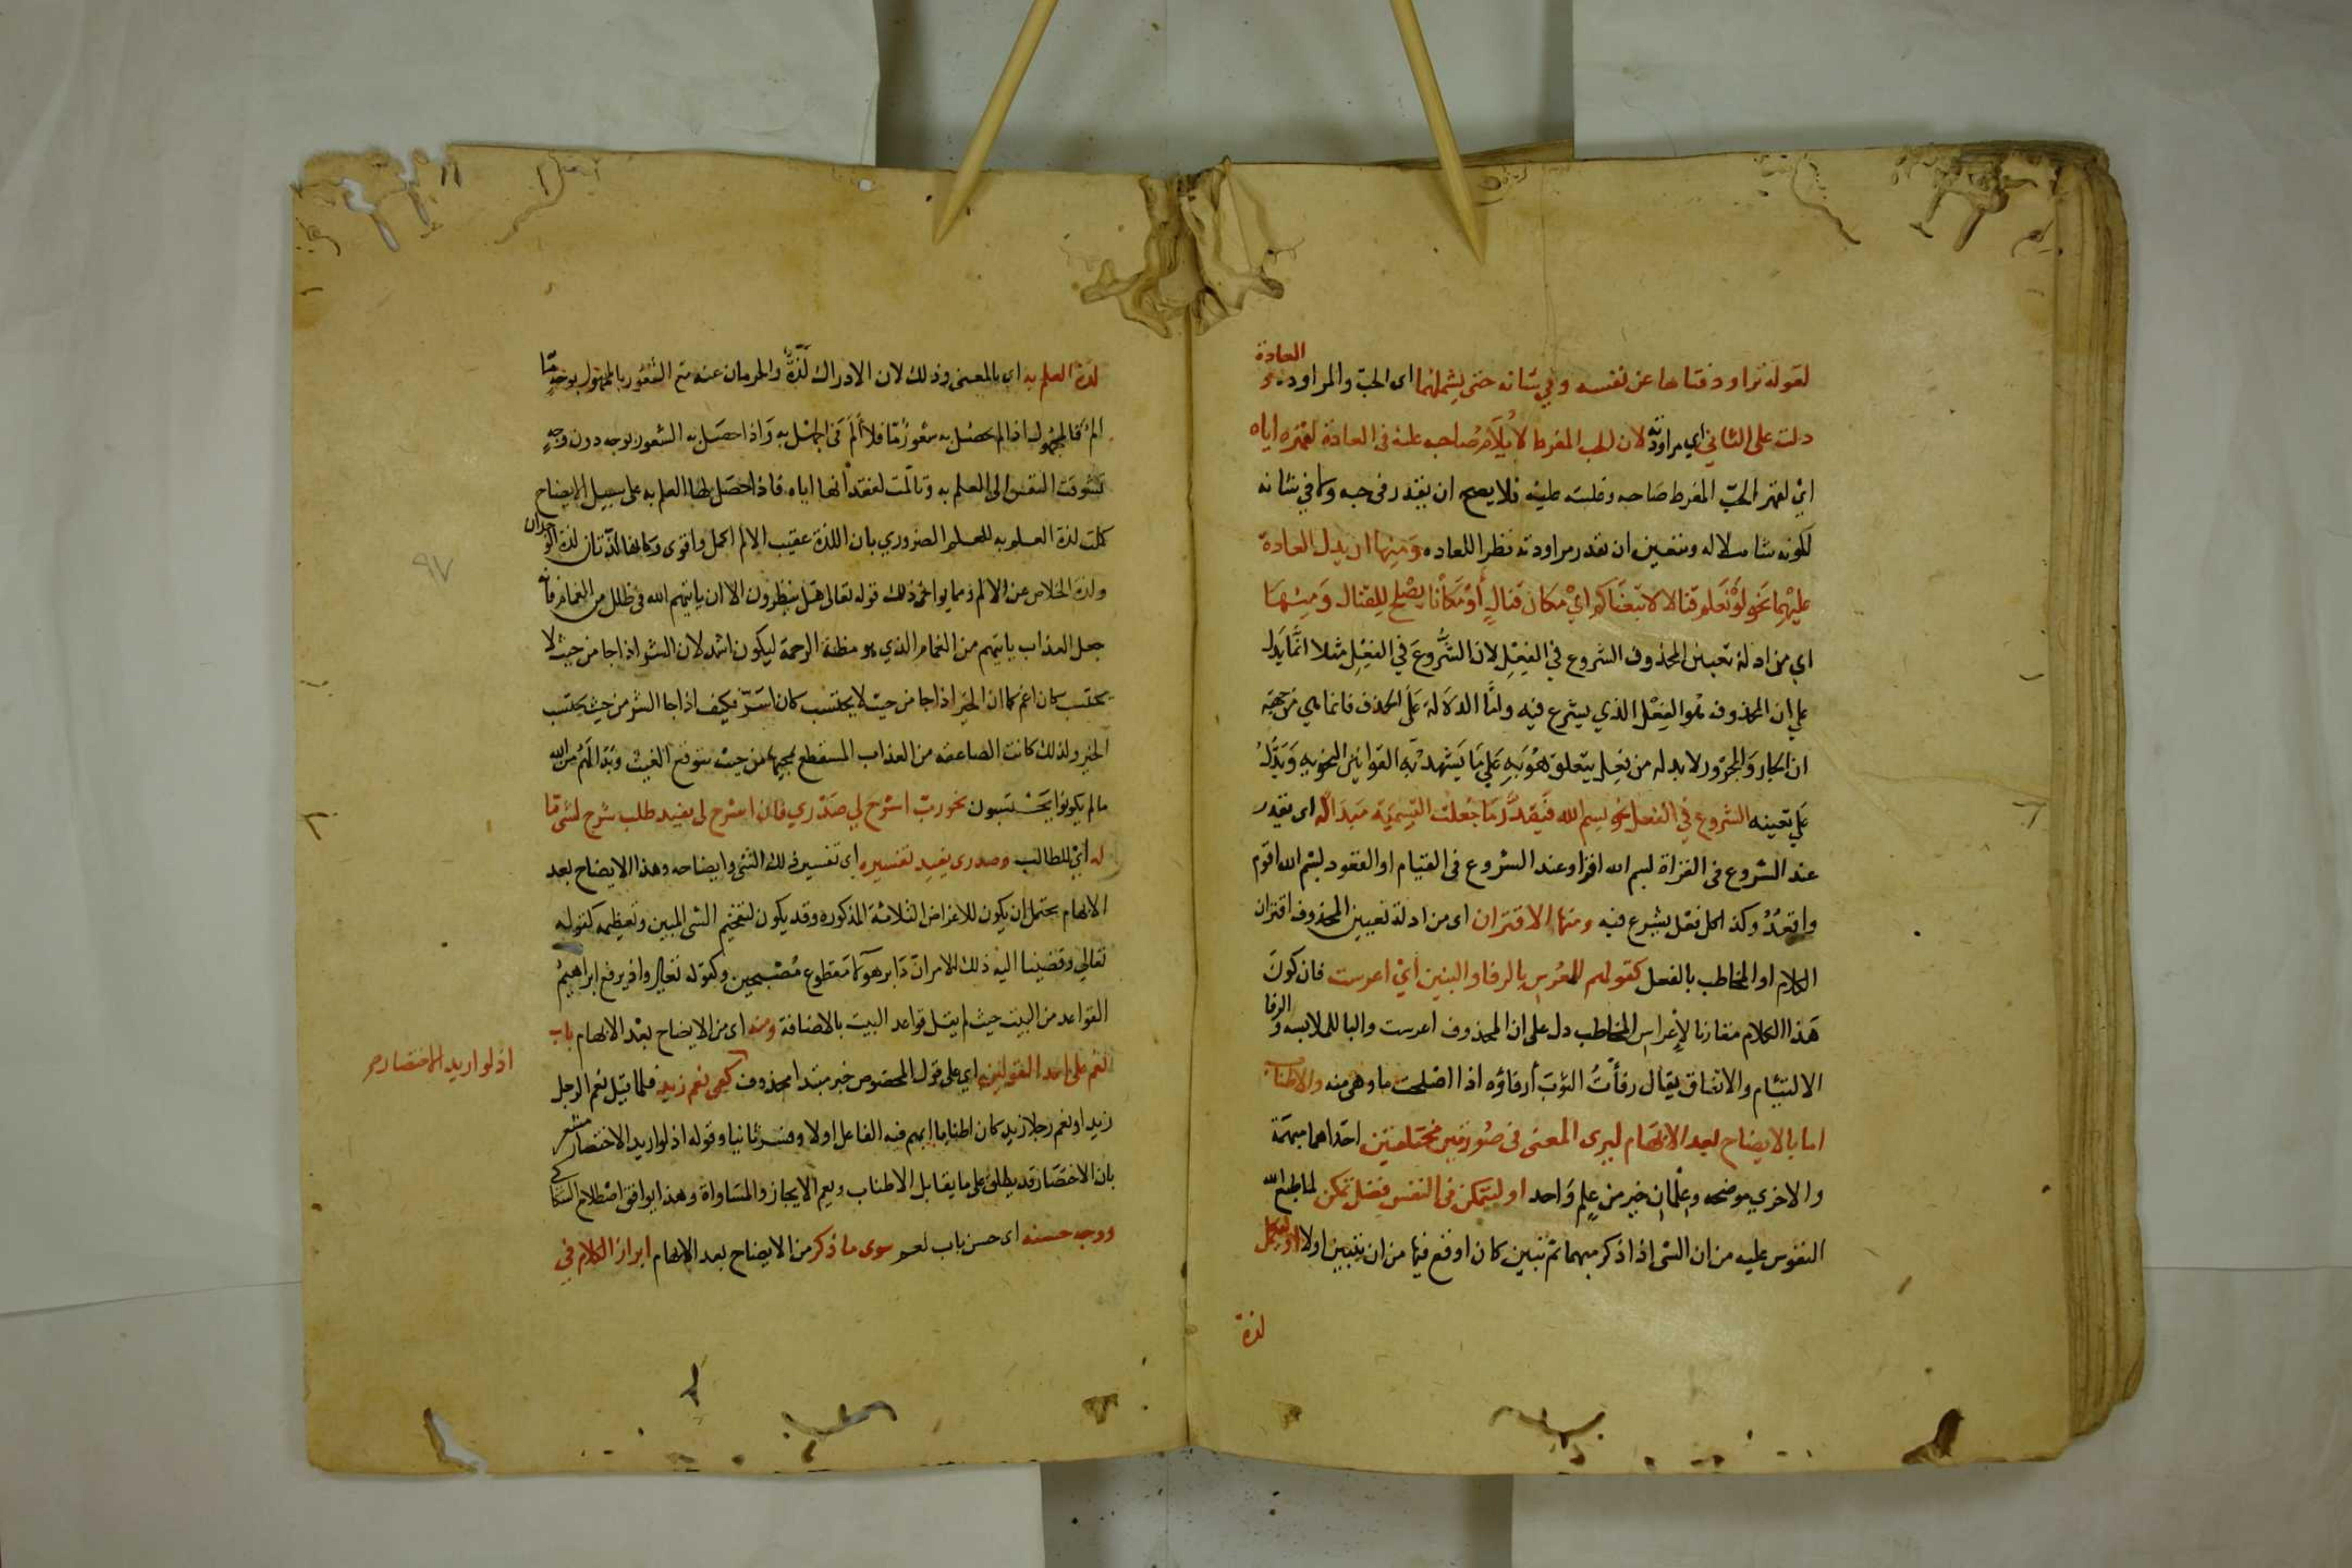 لقوله تراود فتاها عن نفسه وفي شانه حتى يشملهما اى الحبّ والمراودة و العادة
دلت على الثاني اي مراودته لان الحب المفرط لا يُلام صاحبه عليه فى العادة لقهره اياه
اىْ لقهر الحبّ المفرط صاحبه وغلبته عليه فلا يصح ان يقدر فى حبه ولا في شانه
لكونه شاملا له ويتعين ان تقدر مراودته نظرا للعاده ومنها ان يدل العادة
عليهما نحو لَوْ نعلم قتالا لاتبعناكم ايْ مكان قتالٍ أوْ مكانًا يصلح للقتال ومنها
اي من ادلة تعيين المحذوف الشروع في الفِعْلِ لان الشُّروعَ في الفِعْلِ مثلا انَّمَا يَدل
علي ان المحذوف هُو الفِعْل الذي يشرع فيه ولنَّا الدلالة على الحذف فانما هي من جهة
ان الجار والمجرور لا بد له من فعل يتعلق هُوَ بِهِ عَلي مَا يَشهد به القوانين النحوية وَيَدُلُّ
عَلي تعيينه الشروع في الفعل نحو بسم الله فَيقدَّر مَا جُعلت التسميّة مَبدَأ له اى يقدر
عند الشروع فى القراة بسم الله اقرا وعند الشروع فى القيام او القعود بسم الله اقوم
واقعدُ وكذا كل فعل يشرع فيه ومنها الاقتران اى من ادلة تعيين المحذوف اقتران
الكلام او المخاطب بالفعل كقولهم للمعُرس بالرفا والبنين أيْ اعرست فان كونَ
هَذا الكلام مقارنا لإِعْراسِ المخاطب دل على ان المحذوف اعرست والبا للملابسه و الرفا
الالتيام والاتفاق يقال رفأْتُ الثوبَ أرفاؤه اذا اصلحت ما وهى منه والاطناب
اما بالايضاح بعد الابهَام ليرى المعنى فى صُورتين مختلفتين احَداهما مبهَمَة
والاخري موضحه وعِلْمانِ خير من علم وَاحد او ليتمكن فى النفس فضل تمكن لما طبع الله
النفوس عليه من ان الشى اذا ذكر مبهما ثم تبين كان اوقع فيها من ان يتبين اولا او لتكمل
لذة
لذة العلم به اى بالمعنى وذلك لان الادراك لَذّةٌ والحرمان عنه مع الشُّعُور بالمجهول بوجهٍ مَّا
المٌ فالمجهُول اذا لم يحصُل به شعورٌ مّا فلا أَلَمَ فى الجهْل بهِ وَاذا حصَل به الشعور بوجه دون وجهٍ
تشوقت النفس الى العلم به وتالّمت لفقدانها اياه فاذا حصَل لها العلم به على سبيل الايضاح
كملت لذة العلم به للعلم الضروري بان اللذة عقيب الالم اكمل واقوى وكانها لذّتان لذة الوجدان
ولذة الخلاص عن الالم ومما يواخى ذلك قوله تعالى هل ينظرون الا ان ياتيهم الله فى ظلل من الغمام فانه
جعل العذاب ياتيهم من الغمام الذي هو مظنة الرحمة ليكون اشد لان الشر اذا جا من حيث لا
يحتسب كان اغم كما ان الخير اذا جا من حيث لا يحتسب كان اسَرّ فكيف اذا جا الشر من حيث يحتسب
الخير ولذلك كانت الصاعقه من العذاب المستفظع لمجيها من حيث يتوقع الغيث وبَدَا لهُم من الله
ما لم يكونوا يَحْتسبون نحو ربّ اشرَح لي صَدْري فان اشرح لى يفيد طلب شرح لشى مّا
له أيْ للطالب وصدرى يفيد تفسيره اى تفسير ذلك الشى وايضاحه وهذا الايضاح بعد
الابهام يحتمل ان يكون للاغراض الثلاثة المذكوره وقد يكون لتفخيم الشى المبين وتعظيمه كقوله
تعالي وقضينا اليه ذلك الامر انّ دَابر هؤلا مَقطوع مُصْبحين وكقوله تعالى واذ يرفع ابراهيمُ
القواعد من البيت حيث لم يقل قواعد البيت بالاضافة ومنه اى من الايضاح بعْد الابهام باب
نعم على احد القولين اي على قول المخصوص خبر مبتدا محذوف كفى نعم زيد فلما قيل نعم الرجل
زيد او نعم رجلا زيد كان اطنابا ابهم فيه الفاعل اولا وفسر ثانيا وقوله اذ لو اريد الاختصار مشعر
بان الاختصَار قد يطلق على ما يقابل الاطناب ويعم الايجاز والمسَاواة وهذا يوافق اصْطلاح السَكاكي
ووجه حسنه اى حسن باب نعم سوى ما ذكر من الايضاح بعد الابهام ابراز الكلام في
اذ لو اريد الاختصار
٩٧